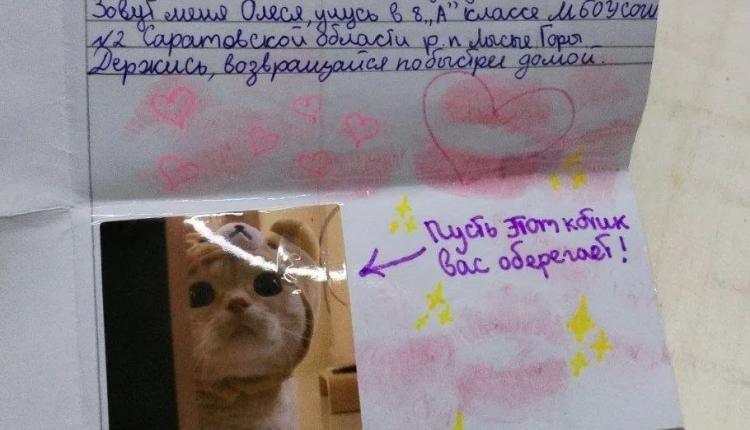 Зовут меня Олеся, учусь в 8 „А" классе МБОУСОШ
№2 Саратовской области р.п Лысые Горы
Держись, возвращайся побыстрее домой.
Пусть этот котик
вас оберегает!